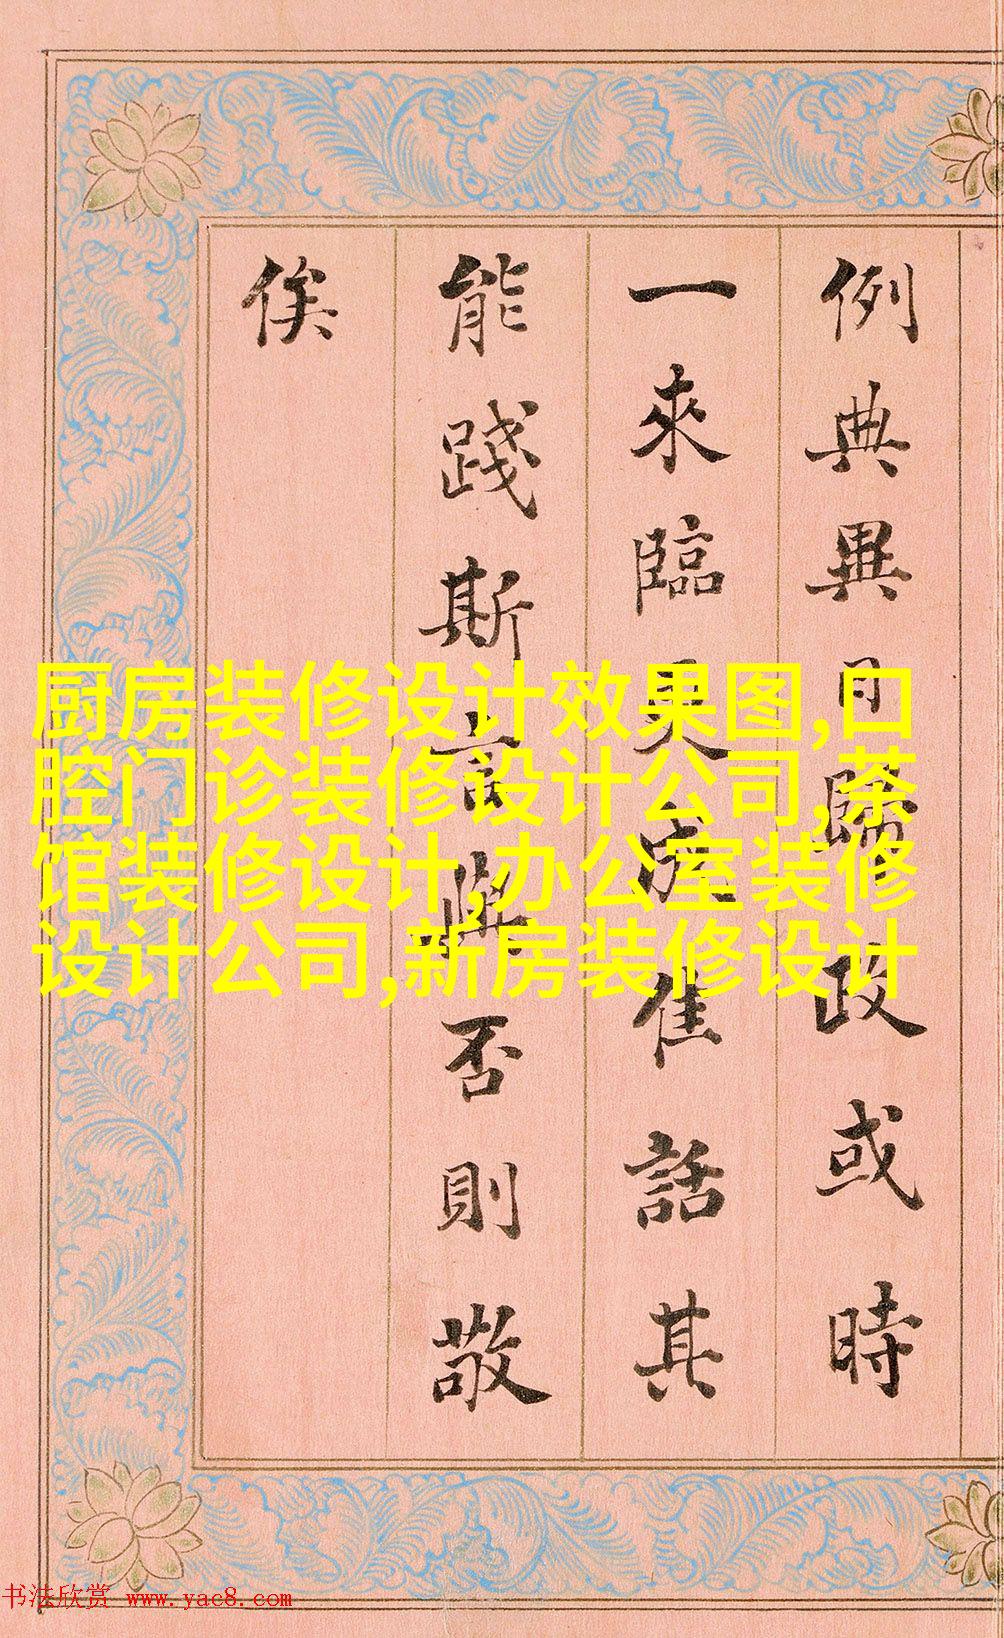 例典異日歸政或時
一來臨更成佳話其
能踐斯言與否則敬
俟
厨房装修设计效果图,口
腔门诊装修设计公司,茶
馆装修设计,办公室装修
设计公司,新房装修设计
书法欣赏 www.yac8.com